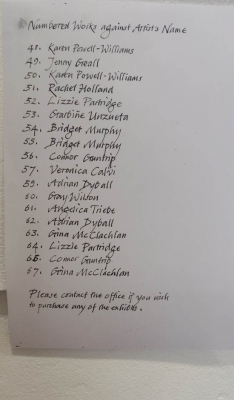 Numbered Works against Artists Name
48. Karen Powell-Williams
49. Jenny Geall
50. Karen Powell-Williams
51. Rachel Holland
52. Lizzie Partridge
53. Garbiñe Unzueta
54. Bridget Murphy
55. Bridget Murphy
56. Conor Guntrip
57. Veronica Calvi
59. Adrian Dyball
60. Gray Wilton
61. Angelica Triebe
62. Adrian Dyball
63. Gina McClachlan
64. Lizzie Partridge
66. Conor Guntrip
67. Gina McClachlan
Please contact the office if you wish
to purchase any of the exhibits.